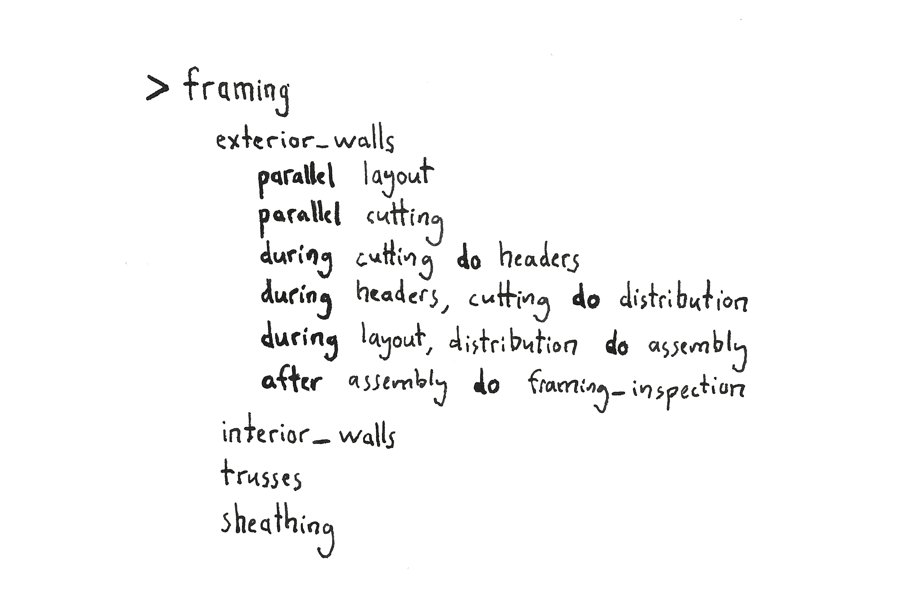 > framing
exterior_walls
parallel layout
parallel cutting
during cutting do headers
during headers, cutting do distribution
during layout, distribution do assembly
after assembly do framing_inspection
interior_walls
trusses
sheathing